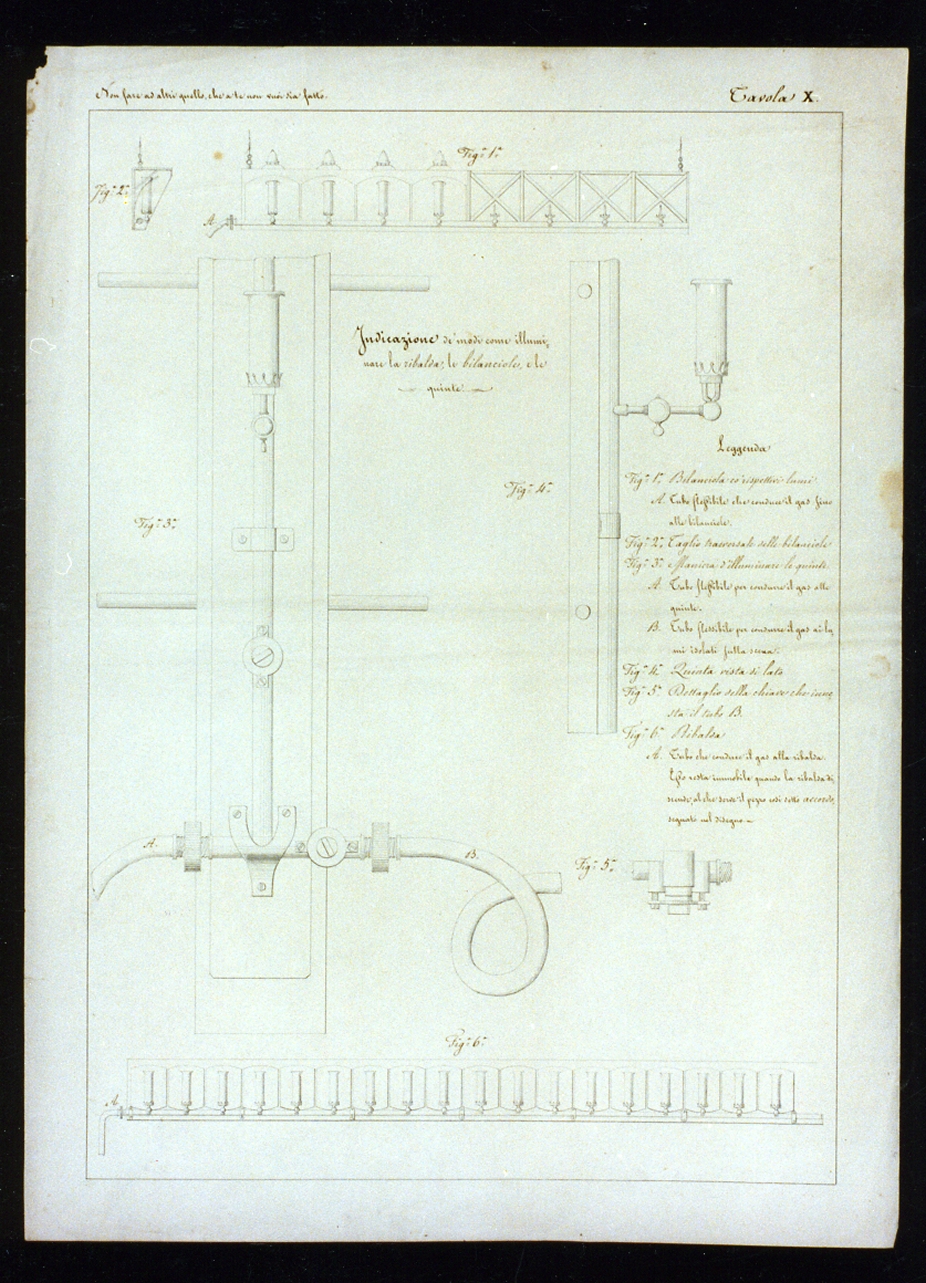 Non fare ad altri quello, che a te non vuoi sia fatto.
Tavola X.
Fig.ª 1.ª
Fig.ª 2.ª
A.
Indicazione de' modi come illumi-
nare la ribalda, le bilanciole, e le
quinte.
Fig.ª 3.ª
Fig.ª 4.ª
Leggenda
Fig.ª 1.ª Bilanciola co' rispettivi lumi
A. Tubo flessibile che conduce il gas fino
alle bilanciole.
Fig.ª 2.ª Taglio trasversale delle bilanciole
Fig.ª 3.ª Maniera d'illuminare le quinte.
A. Tubo flessibile per condurre il gas alle
quinte.
B. Tubo flessibile per condurre il gas ai lu-
mi isolati sulla scena.
Fig.ª 4.ª Quinta vista di lato
Fig.ª 5.ª Dettaglio della chiave che inne-
sta il tubo B.
Fig.ª 6.ª Ribalda
A. Tubo che conduce il gas alla ribalda.
Esso resta immobile quando la ribalda di-
scende, al che serve il pezzo così detto accordo,
segnato nel disegno
A.
B.
Fig.ª 5.ª
Fig.ª 6.ª
A